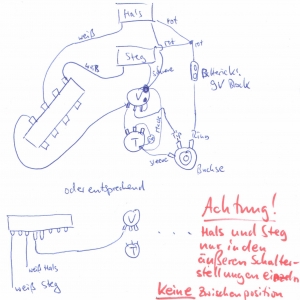 Hals
rot
weiß
Steg
rot
rot
weiß
Batterieclip
9V Block
sleeve
V
T
Ring
sleeve
Buchse
oder entsprechend
V
T
weiß Hals
weiß Steg
Achtung!
.... Hals und Steg
nur in den
äußeren Schalter-
stellungen einzeln
Keine Zwischenposition